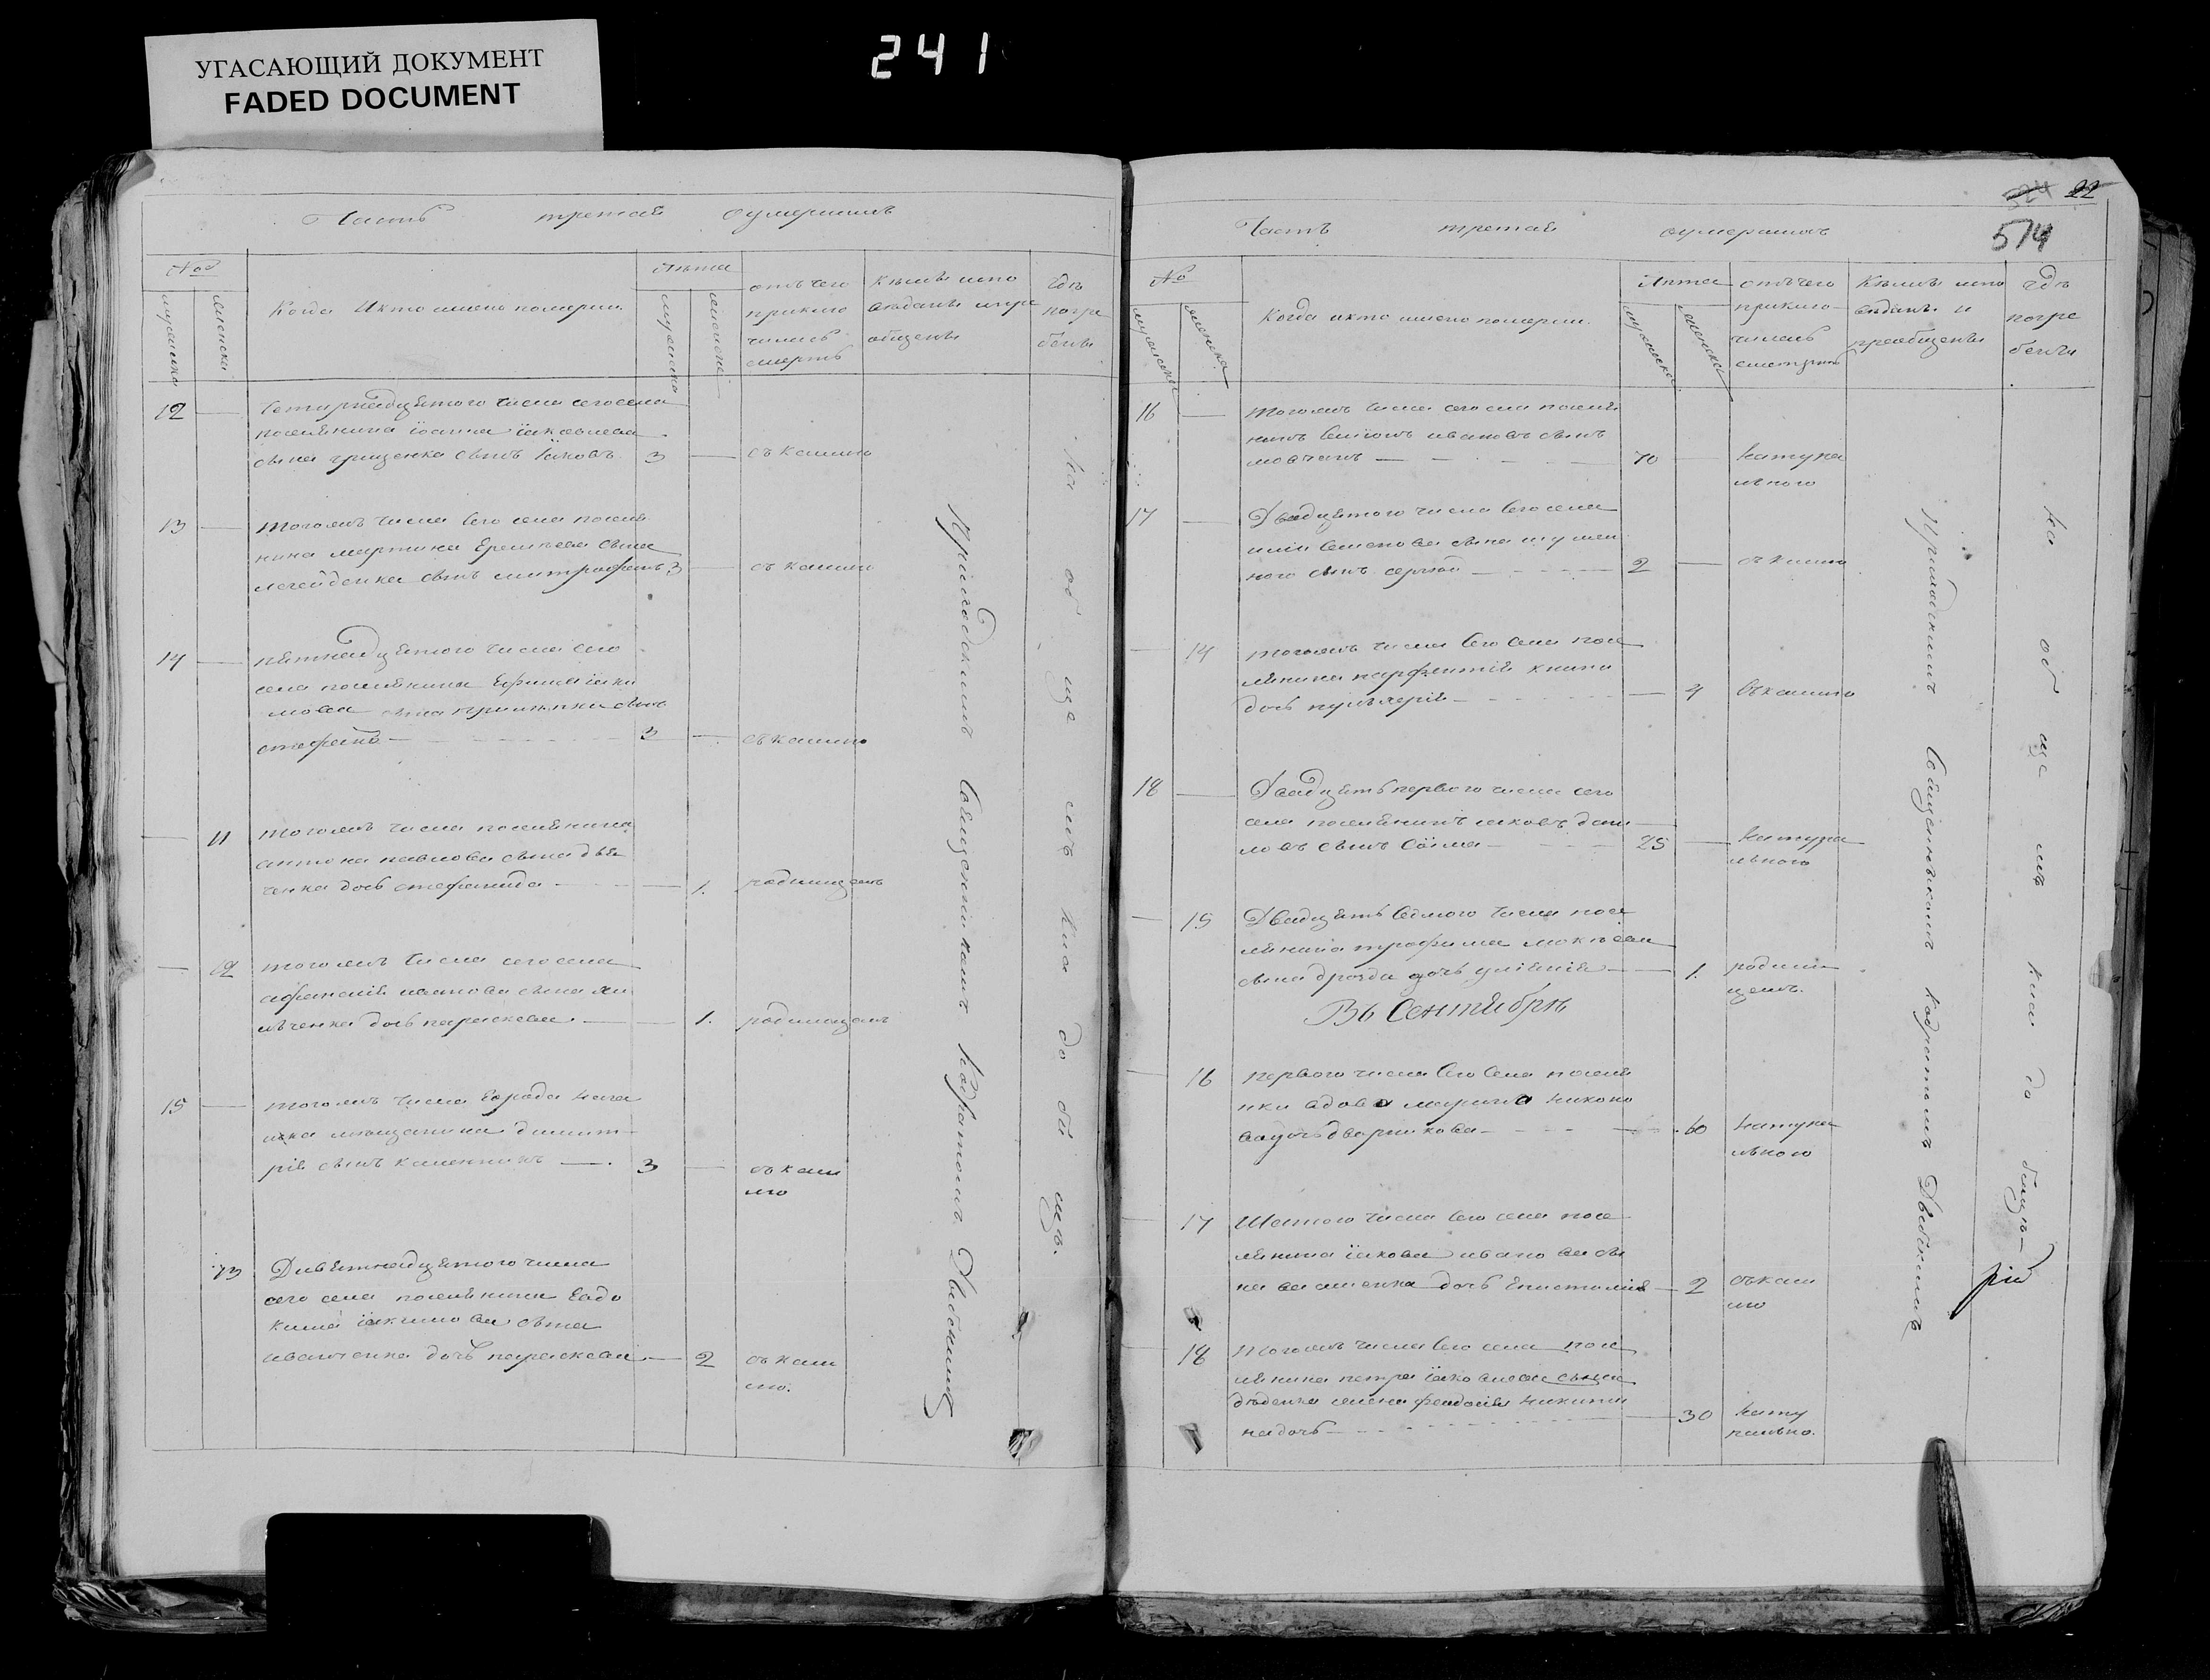 УГАСАЮЩИЙ ДОКУМЕНТ
FADED DOCUMENT
241
Часть третая оумершихъ
№
Лѣта
мужеска
женска
Когда Икто имено померли.
мужеска
женска
отъ чего
приклю
чилась
смерть
Кѣмъ испо
вѣданъ ипри
общенъ
Гдѣ
погре
бенъ
12
Четырнадцятого числа сего села
поселянина іоанна іаковлева
сына грищенка сынъ іаковъ
3
съ кашлю
13
тогожъ числа сего села поселя
нина мартина Еремѣева сына
легейденка сынъ митрофанъ
3
съ кашлю
14
пятнадцятого числа сего
села поселянина Ефима іаки
мова сына сынъ
стефанъ
3
съ кашлю
11
тогожъ числа поселянина
антона павлова сына дья
ченка дочь стефанида
1.
родимцемъ
12
тогожъ числа сего села
афанасія иванова сына
дочь параскева
1.
родимцемъ
15
тогожъ числа Города
мещанина димит
рія сынъ
3
съ каш
лю
13
Дивятнадцятого числа
сего села поселянина Евдо
кима іакимова сына
ивашенка дочь параскева
2
съ каш
лю.
Приходскимъ Священникомъ Кодратомъ
на общемъ кладбищѣ.
22
574
Часть третая оумершихъ
№
мужеска
женска
Когда икто имено померли.
Лѣта
мужеска
женска
отъ чего
приклю
чилась
смерть
Кѣмъ испо
вѣданъ и
преобщенъ
Гдѣ
погре
бенъ
16
тогожъ числа сего села поселя
нинъ ивановъ сынъ
мовчанъ
70
натура
льного
17
Двадцятого числа сего села
семенова сына
сынъ сергей
2
съ кашлю
14
тогожъ числа сего села посе
лянина парфентія книша
дочь пульхерія
4
съ кашлю
18
Двадцять первого числа сего
села поселянинъ іаковъ дани
ловъ сынъ
25
натура
льного
15
Двадцять седмого числа посе
лянина трофима мокѣева
сына дрозда дочь уліянія
1.
родим
цемъ.
Въ Сентябрѣ
16
первого числа сего села поселя
нки вдова марина никоно
ва дочь дворникова
60
натура
льного
17
Шестого числа сего села посе
лянина іакова иванова сы
на дочь Епистимія
2
съ каш
лю
18
тогожъ числа сего села посе
лянина петра іаковлева сына
дѣденка жена феодосія никити
на дочь
30
нату
рально.
Приходскимъ Священникомъ Кодратомъ
на общемъ кладбищѣ
рій